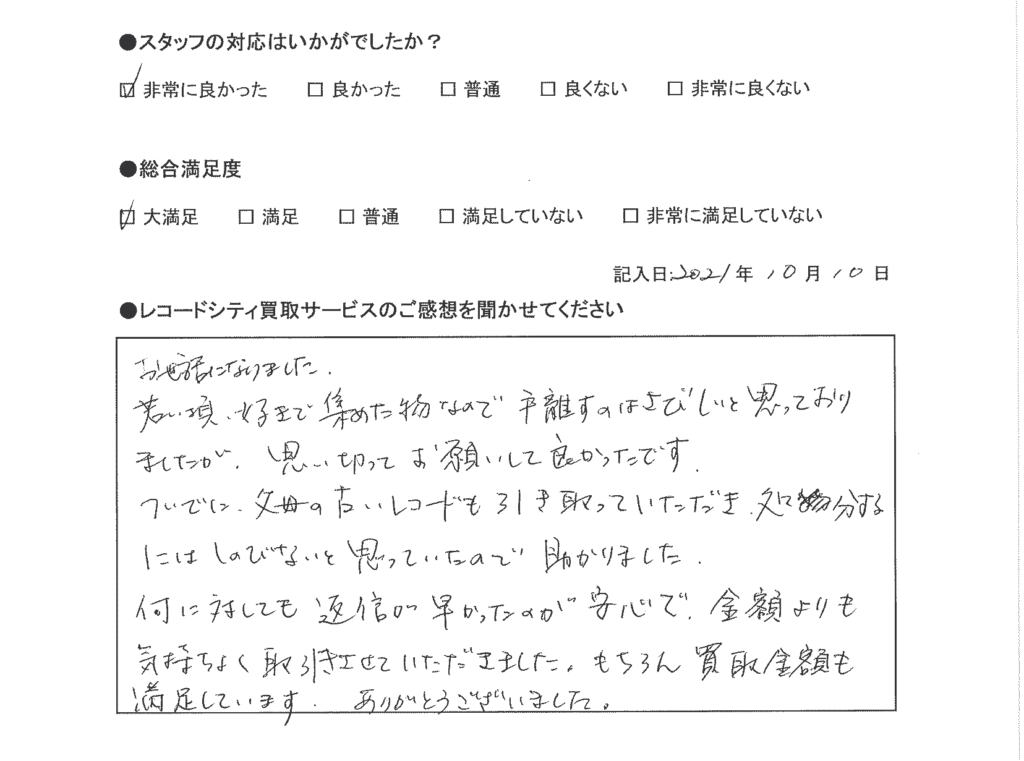 ●スタッフの対応はいかがでしたか？
☑ 非常に良かった □ 良かった □ 普通 □ 良くない □ 非常に良くない
●総合満足度
☑ 大満足 □ 満足 □ 普通 □ 満足していない □ 非常に満足していない
記入日:2021年 10月 10日
●レコードシティ買取サービスのご感想を聞かせてください
お世話になりました.
若い頃、好きで集めた物なので手離すのはさびしいと思っており
ましたが、思い切ってお願いして良かったです.
ついでに、父母の古いレコードも引き取っていただき、処分する
にはしのびないと思っていたので助かりました.
何に対しても返信が早かったのが安心で、金額よりも
気持ちよく取引きさせていただきました。もちろん買取金額も
満足しています. ありがとうございました。